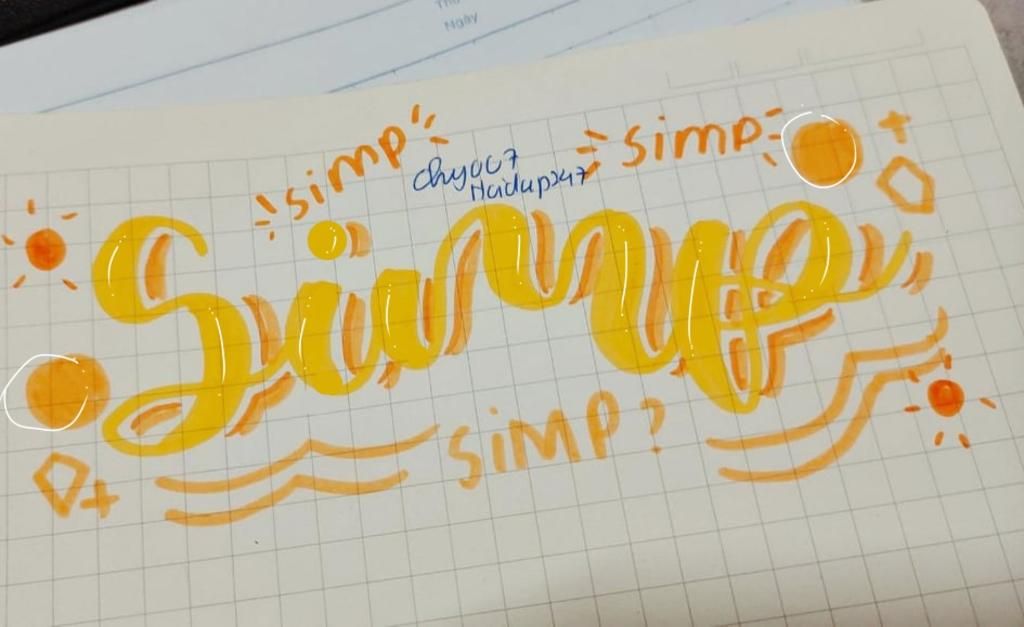 Thứ
Ngày
simp
simp
chy007
Haidup247
Simp
SiMP?